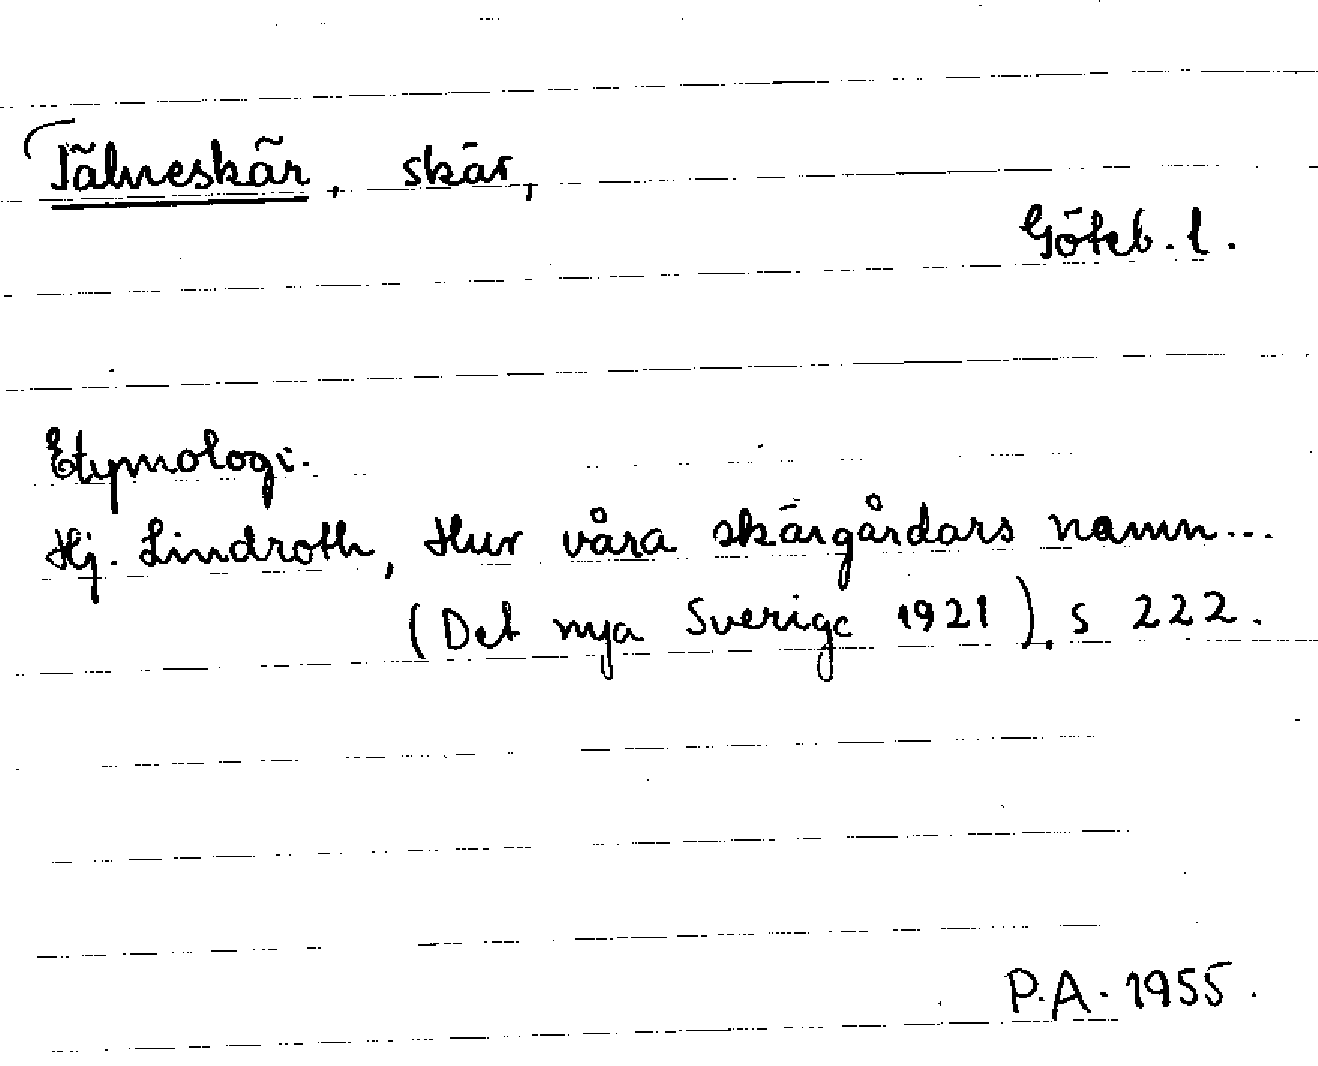 Tälneskär, skär,
Göteb. l.
Etymologi.
Hj. Lindroth, Hur våra skärgårdars namn...
(Det nya Sverige 1921). s 222.
P.A. 1955.